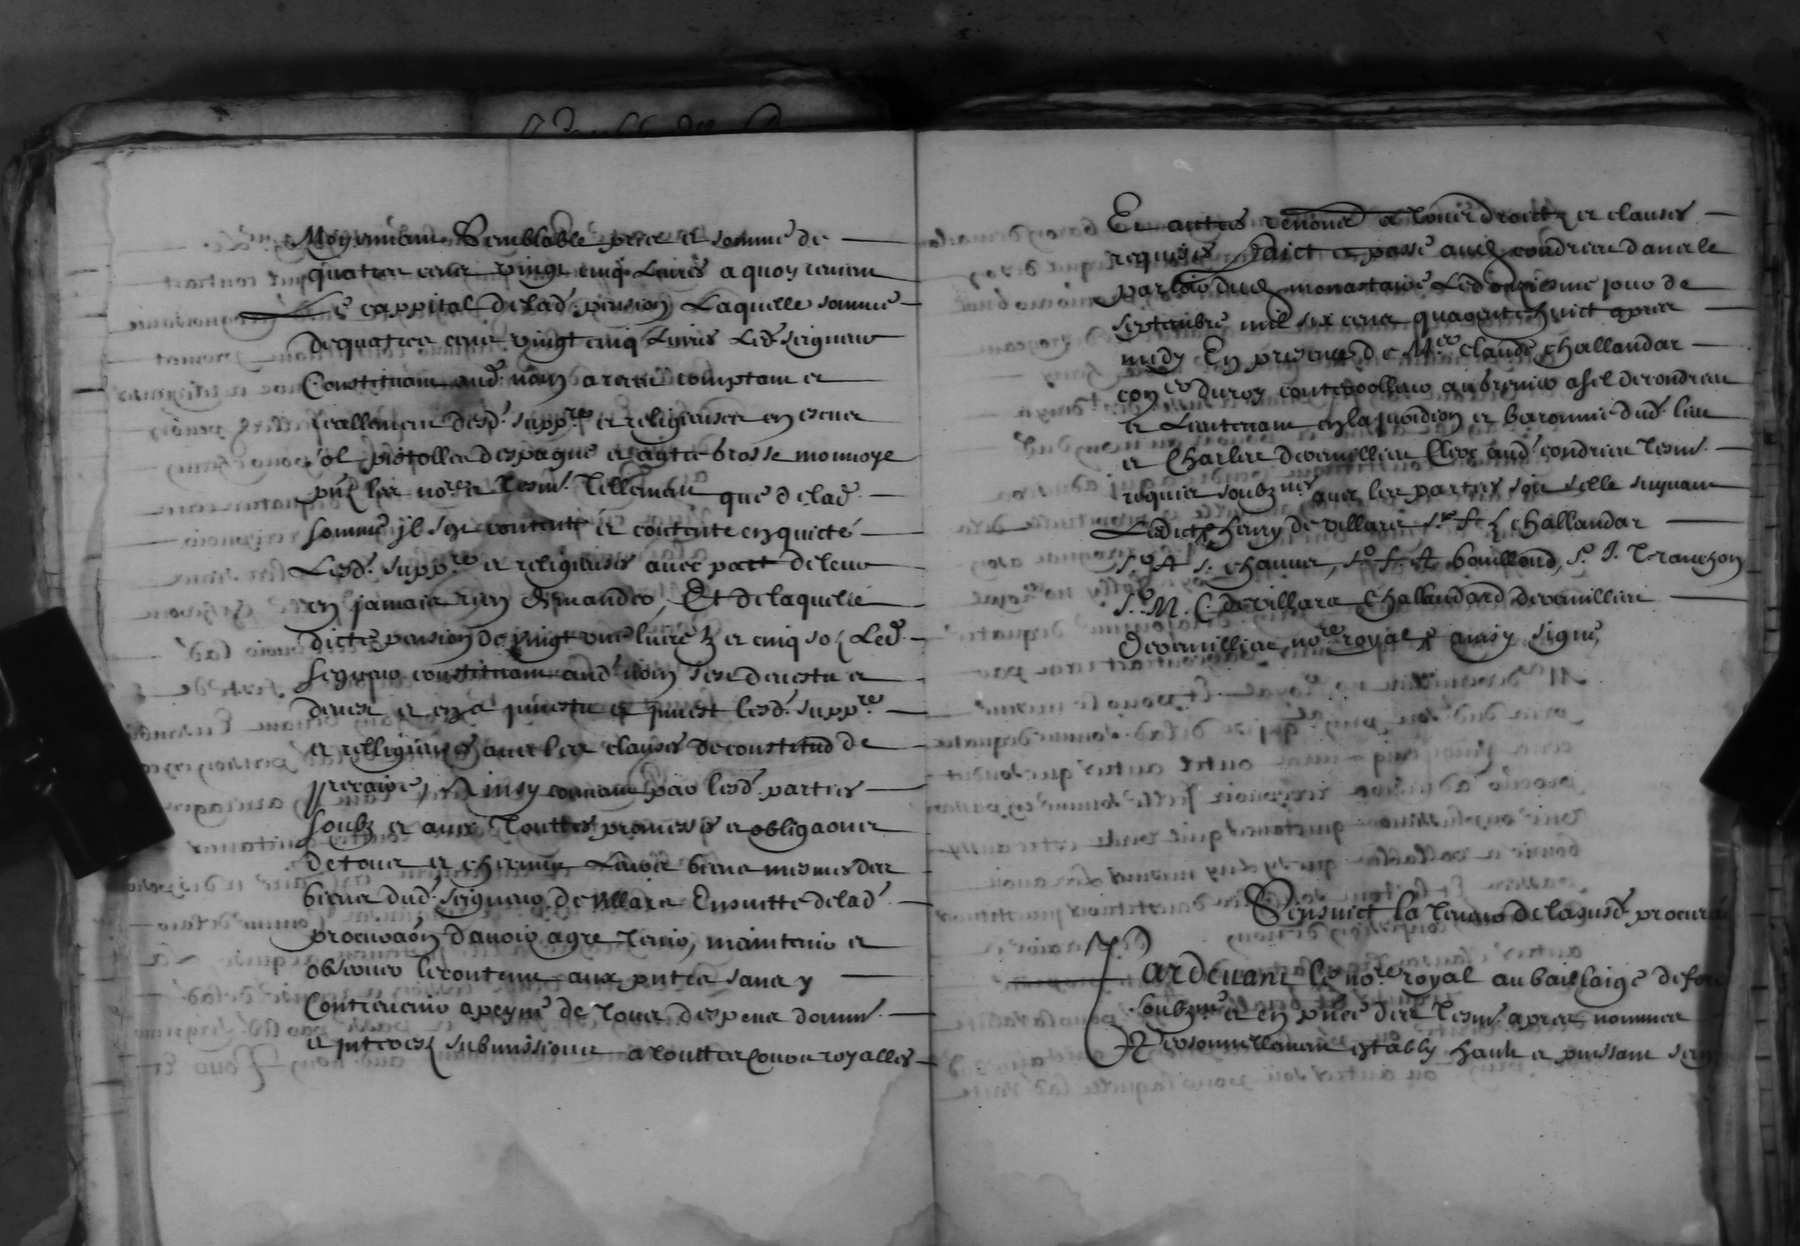 Moyennant Semblable prix et somme de
quatre cens vingt cinq Livres a quoy revient
Le cappital de lad. pension Laquelle somme
de quatre cens vingt cinq Livres Led. seigneur
Constituant aud. nom a receu comptant et
reallement desd. supp.re et religieuses en escus
sol pistolles despagne et autre brosse monnoye
pnt les no.re et tesm. tellement que de lad.
somme jl sen contente et contente en quicte
Lesd. supp.re et religieuses avec pact de leur
en jamais rien demander, Et de laquelle
dicte pension de vingt une livres et cinq solz Led.
seigneur constituant aud. nom sest devestu et
devest et en a jnvestu et jnvest lesd. supp.re
et religieuses avec les clauses de constitud de
precaire, Ainsy convenu par lesd. parties
soubz et avec touttes promesses et obliga͠ons
de tous et chascuns leurs biens mesmes des
biens dud. seigneur de villars Ensuitte de lad.
procura͠on davoir agre tenir, maintenir et
observer le contenu aux pntes sans y
Contrevenir a peyne de tous despens domm.
et jnterestz submissions a touttes cours royalles
Et autres renoncé a tous droictz et clauses
requises faict et passé aud. condrieu dans le
parloir dud. monastaire Led. jour de
septembre mil six cens quarente huict apres
midy En presence de M.re claude challandar
con.er du roy contreroolleur au grenier a sel de condrieu
et Lieutenant en la jurid͠ion et baronnie dud. lieu
et Charles devernillieu clerc aud. condrieu tesm.
requis soubz.nes avec les parties sur celle signant
Ledict henry de villars challandar
S.r A S. chanus, S.r bouilloud, S.r J. tranchon
S.r M. C. de villars Challandard devernillieu
devernillieu no.re royal ainsy signe
Sensuict la teneur de lasusd. procura
Pardevant le no.re royal au bailliaige de fore
soubzne et en pnce des tesm. apres nommes
Personnellement estably hault et puissant seig